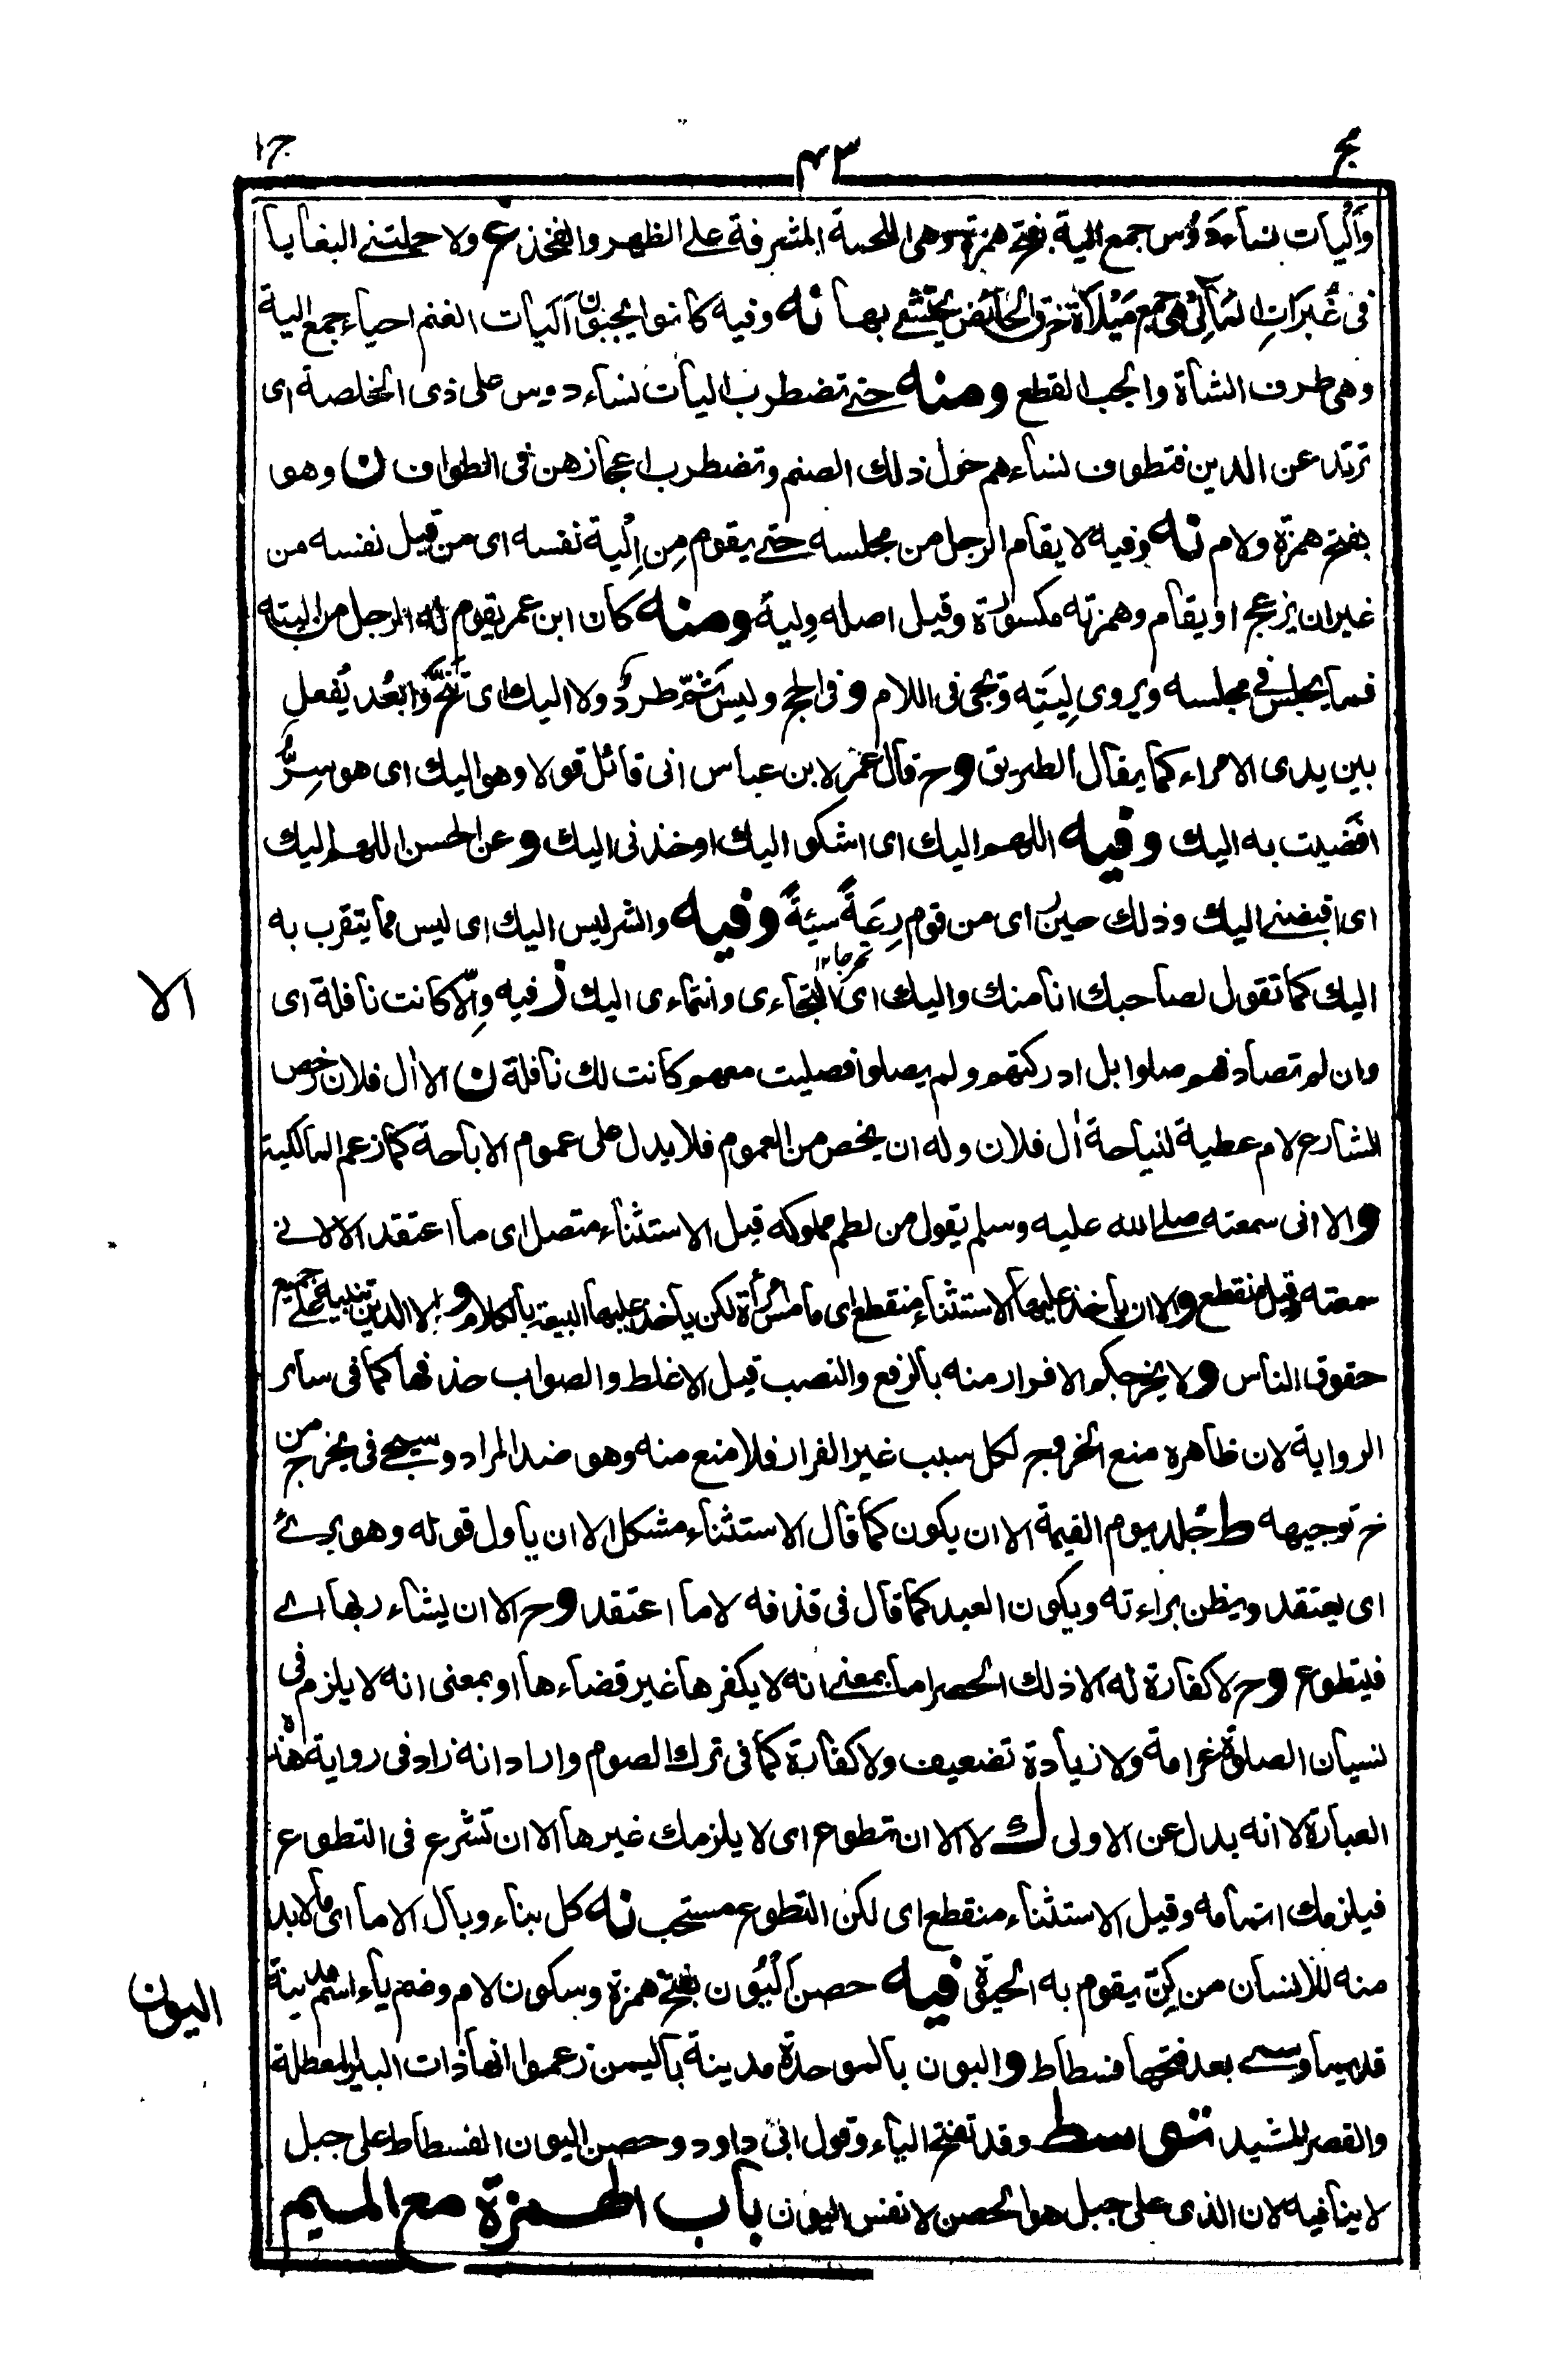 مج
٤٣
ج١
وأَلْيات نساء دَوْس جمع الية بفتح همزة وهى اللحمة المشرفة على الظهر والفخذ ع ولا حملتنى البغايا
فى غُبَرَاتِ المآلِىْ هى جمع مَيْلاة خرق الحائض يحتشى بها نه وفيه كانوا يجبنون اَلَيات الغنم احياء جمع الية
وهى طرف الشاة والجب القطع ومنه حتى تضطرب اليات نساء دويس على ذى الخلصة اى
ترتد عن الدين فتطوف نساءهم حول ذلك الصنم وتضطرب اعجازهن فى الطواف ن وهو
بفتح همزة ولام نه وفيه لا يقام الرجل من مجلسه حتى يقوم مِن اِلْية نفسه اى من قبل نفسه من
غير ان يزعج او يقام وهمزته مكسورة وقيل اصله وِلية ومنه كان ابن عمر يقوم له الرجل من اليته
فما يجلس فى مجلسه ويروى لِيَتِه وتجى فى اللام و فى الحج وليس ثَمّ طردٌ ولا اليك اى تَنَحَّ وابعُد يُفعل
بين يدى الامراء كما يقال الطريق و ح قال عمر لابن عباس انى قائل قولا وهو اليك اى هو سِرٌّ
افضيت به اليك وفيه اللهم اليك اى اشكو اليك او خذنى اليك و عن الحسن اللهم اليك
اى اقبضنى اليك وذلك حين راى من قوم رِعَةً سيئةً وفيه والشر ليس اليك اى ليس مما يتقرب به
اليك كما تقول لصاحبك انا منك واليك اى التجاءى وانتماءى اليك ز فيه وإلّا كانت نافلة اى
الا
وان لم تصادفهم صلوا بل ادركتهم ولم يصلوا فصليت معهم كانت لك نافلة ن الا ال فلان رخص
الشارع لام عطية لنياحة ال فلان وله ان يخص من العموم فلا يدل على عموم الاباحة كما زعم المالكية
والا انى سمعته صلى الله عليه وسلم يقول من لطم مملوكه قيل الاستثناء متصل اى ما اعتقد الا لانى
سمعته وقيل منقطع والا ان ياخذ عليها الاستثناء منقطع اى ما مس امرأة لكن ياخذ عليها البيعة بالكلام و الا الدين تنبيه على جميع
حقوق الناس ولا يخرجكم الا فرار منه بالرفع والنصب قيل الا غلط والصواب حذفها كما فى سائر
الرواية لان ظاهره منع الخروج لكل سبب غير الفرار فلا منع منه وهو ضد المراد وسيجى فى يخرج من
خ توجيهه ط جلد يوم القيمة الا ان يكون كما قال الاستثناء مشكل الا ان ياول قوله وهو برىء
اى يعتقد ويظن براءته ويكون العبد كما قال فى قذفه لا ما اعتقد و ح الا ان يشاء ربها اى
فيتطوع و ح لا كفارة له الا ذلك الحصر اما بمعنى انه لا يكفرها غير قضاءها او بمعنى انه لا يلزم فى
نسيان الصلوة غرامة ولا زيادة تضعيف ولا كفارة كما فى ترك الصوم واراد انه زاد فى رواية هذه
العبارة لا انه بدل عن الاولى ك لا الا ان تطوع اى لا يلزمك غيرها الا ان تشرع فى التطوع
فيلزمك اتمامه وقيل الاستثناء منقطع اى لكن التطوع مستحب نه كل بناء وبال الا ما اى ما لا بد
منه للانسان من كِنّ يقوم به الحيوة فيه حصن اَلْيُون بفتح همزة وسكون لام وضم ياء اسم مدينة
اليون
قديما وسمى بعد فتحها فسطاط والبون بالموحدة مدينة باليمن زعموا انها ذات البئر المعطلة
والقصر المشيد توسط وقد تفتح الباء وقول ابى داود وحصن اليون الفسطاط على جبل
لا ينافيه لان الذى على جبل هو الحصن لا نفس اليون باب الهمزة مع الميم